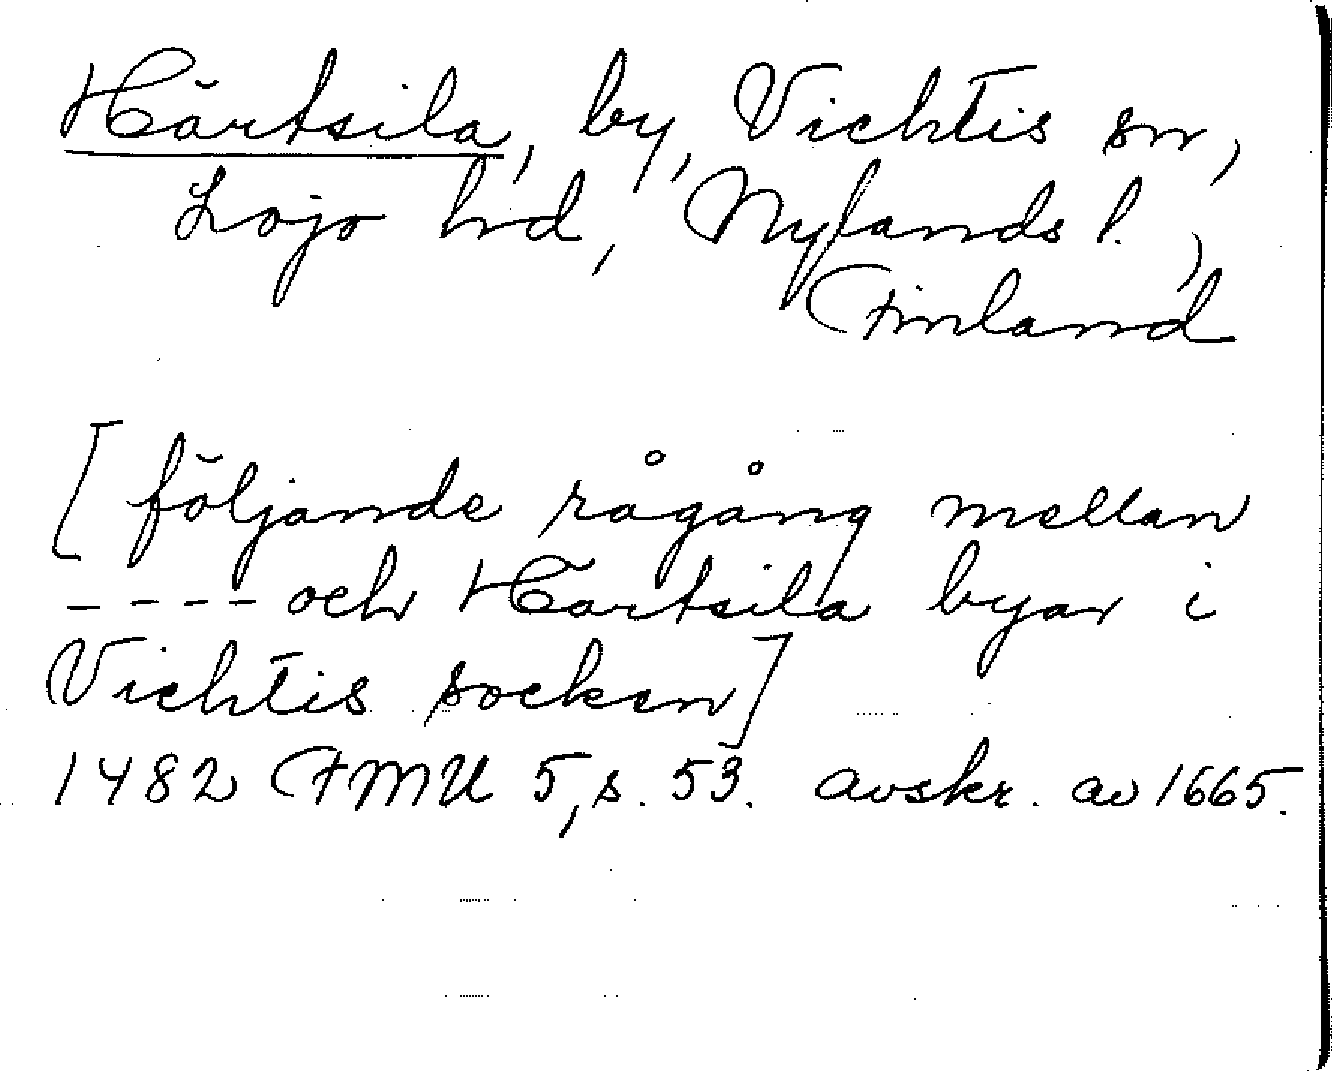 Härtsila, by, Vichtis sn,
Lojo hd, Nylands l.,
Finland
[följande rågång mellan
---- och Hartsila byar i
Vichtis socken]
1482 FMU 5, s. 53. avskr. av 1665.